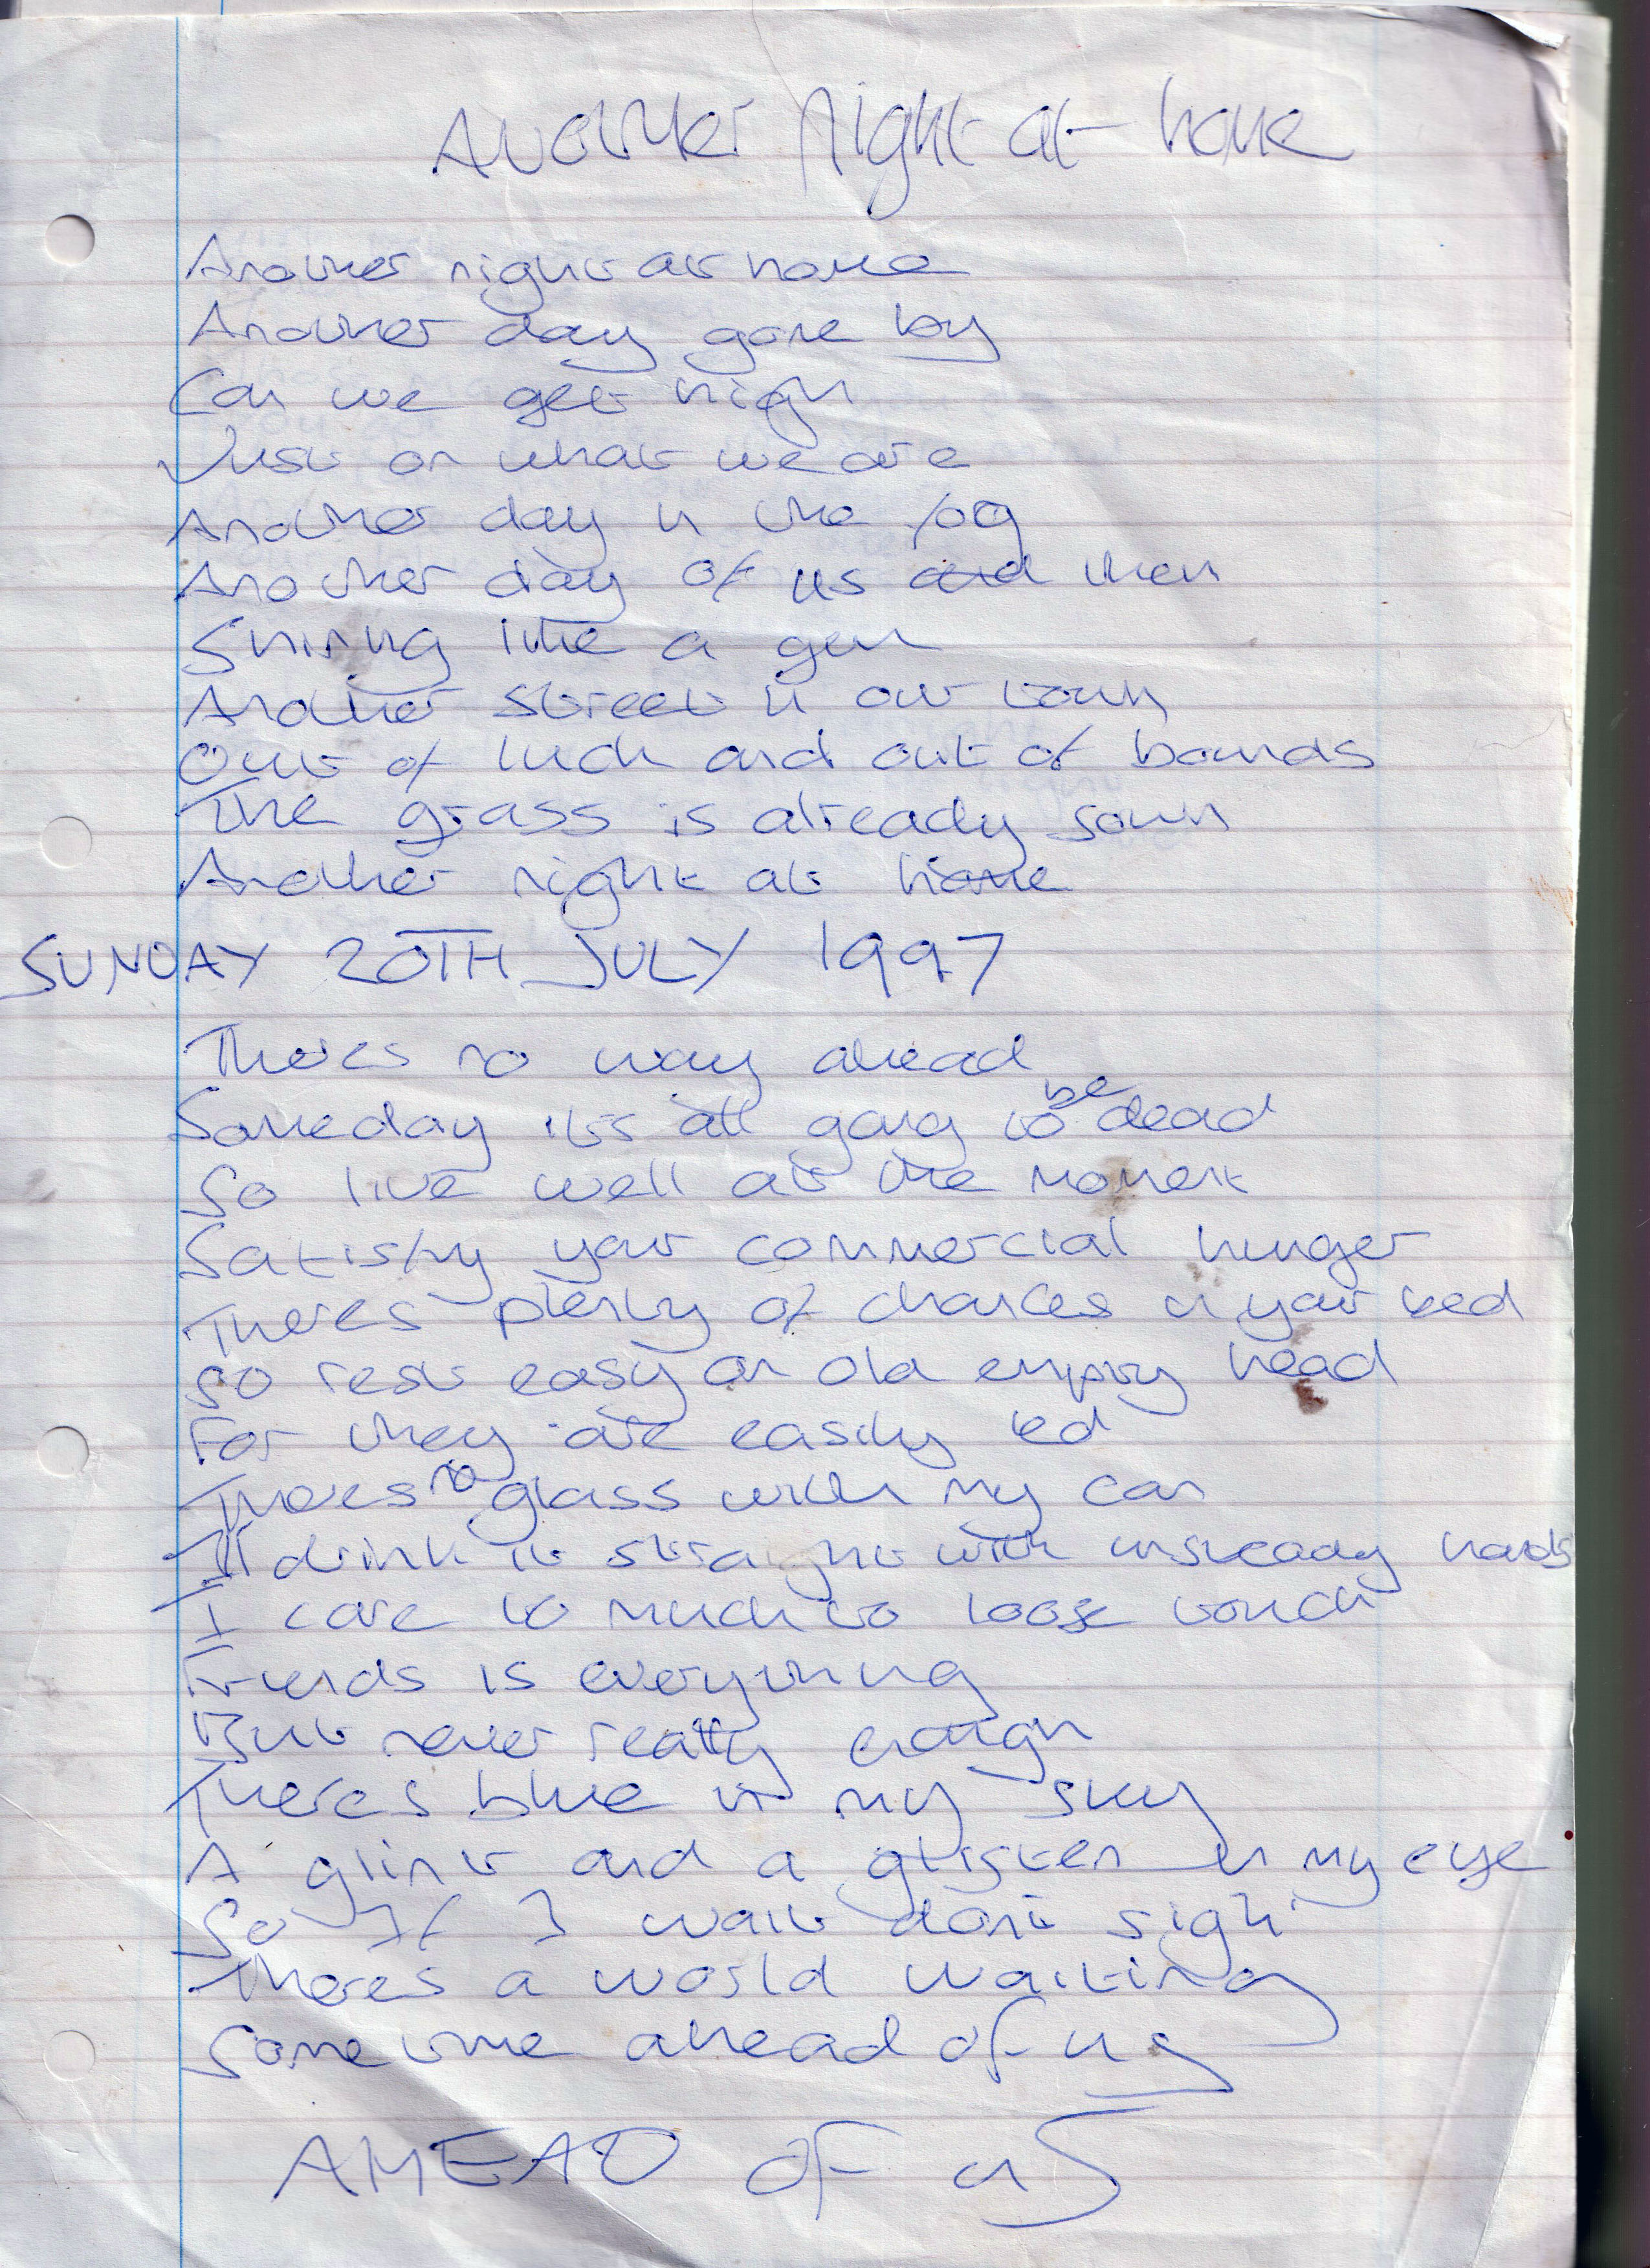 Another Night at home
Another night at home
Another day gone by
Can we get high
Just on what we are
Another day in the fog
Another day of us and them
Shining like a gem
Another street in our town
Out of luck and out of bounds
The grass is already sown
Another night at home
SUNDAY 20TH JULY 1997
Theres no way ahead
Someday its all going to be dead
So live well at the moment
Satisfy your commercial hunger
Theres plenty of chances in your bed
So rest easy on old empty head
For they are easily led
Theres no glass with my can
Ill drink it straight with unsteady hands
I care to much to loose touch
Friends is everything
But never really enough
Theres blue in my sky
A glint and a glisten in my eye
So If I wait dont sigh
Theres a world waiting
Some time ahead of us
AHEAD OF US